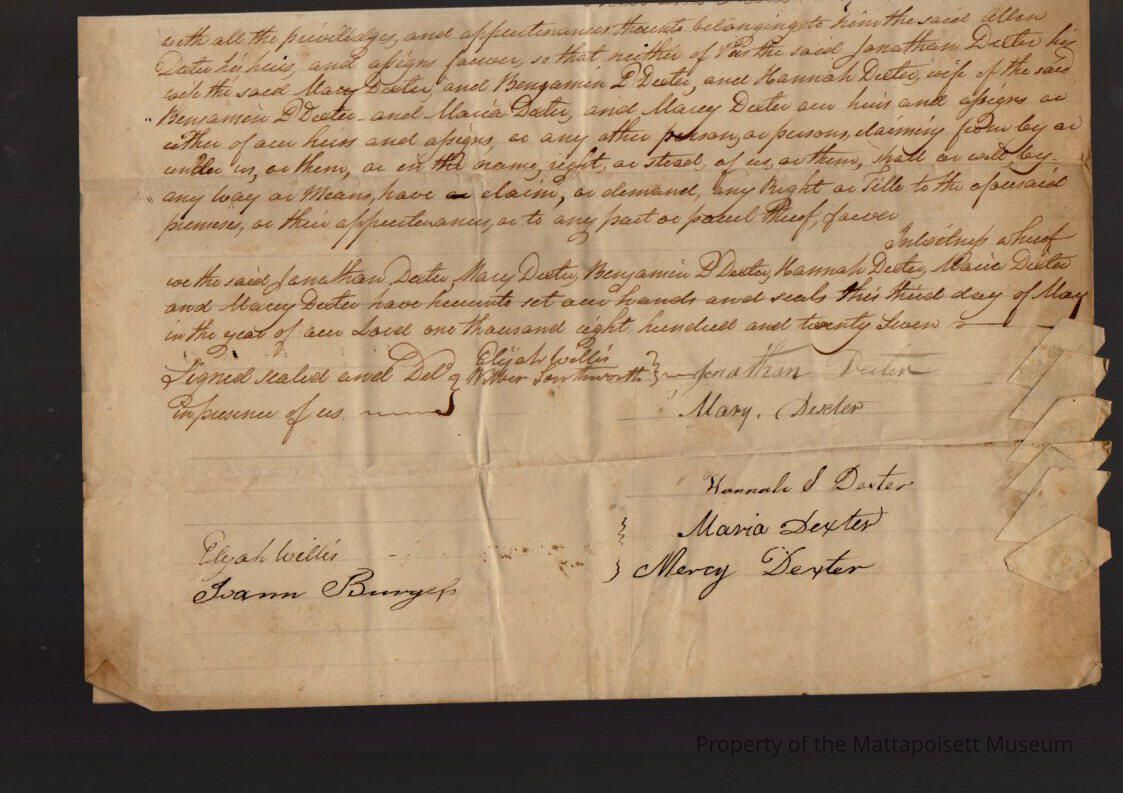 with all the priviledges, and appurtenances thereto belonging to him the said Allen
Dexter his heirs, and assigns forever, so that neither of us the said Jonathan Dexter his
wife the said Mary Dexter, and Benjamin P Dexter, and Hannah Dexter, wife of the said
Benjamin P Dexter and Maria Dexter, and Marcy Dexter our heirs and assigns or
either of our heirs and assigns, or any other person, or persons, claiming from by or
under us, or them, or in the name, right, or stead, of us, or them, shall or will by
any way or Means, have or claim, or demand, any Right or Title to the aforesaid
premises, or their appurtenances, or to any part or parcel thereof, forever
In witness whereof
we the said Jonathan Dexter, Mary Dexter, Benjamin P Dexter, Hannah Dexter, Maria Dexter
and Marcy Dexter have hereunto set our hands and seals this third day of May
in the year of our Lord one thousand eight hundred and twenty seven
Elijah Willis
Signed sealed and Deld Wilber Southworth Jonathan Dexter
in presence of us Mary. Dexter
Hannah S Dexter
Maria Dexter
Elijah Willis
Mercy Dexter
Burgess
Property of the Mattapoisett Museum